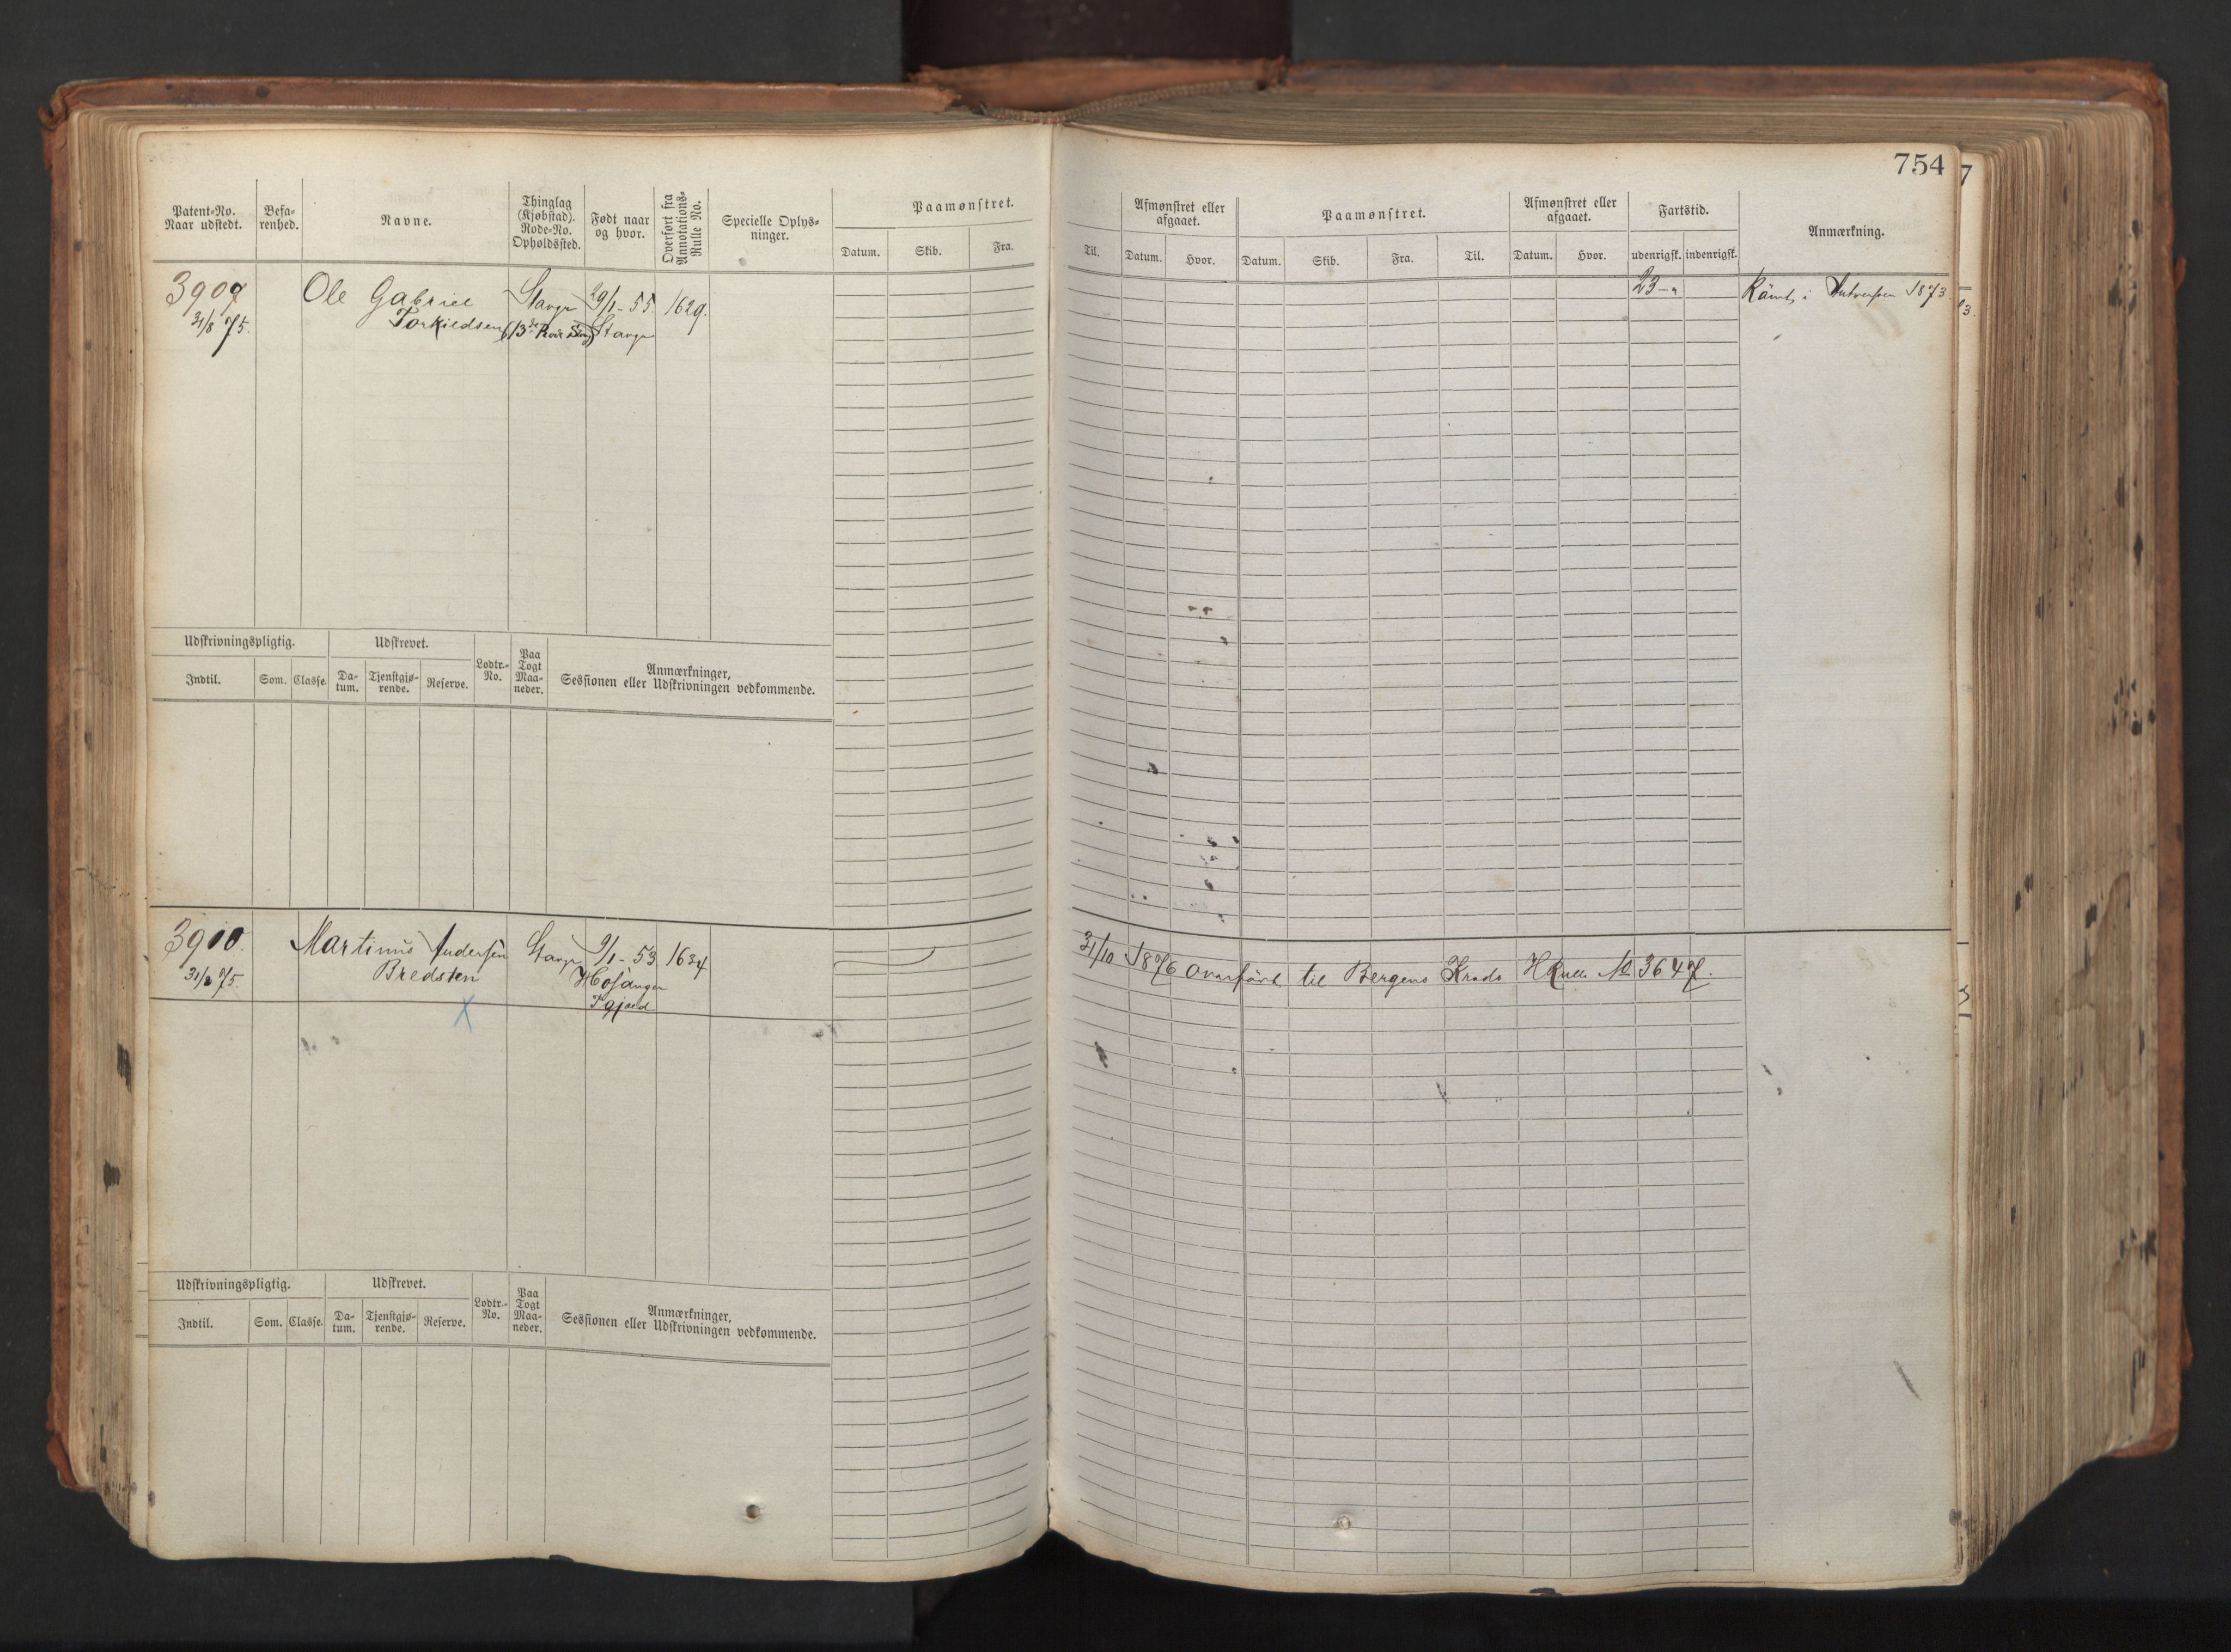 754
Patent-No.
Naar udstedt.
Befa-
renhed.
Navne.
Thinglag
(Kjøbstad).
Rode-No.
Opholdssted.
Født naar
og hvor.
Overført fra
Annotations-
Rulle No.
Specielle Oplys-
ninger.
Paamønstret.
Datum. Skib. Fra.
Til.
Afmønstret eller
afgaaet.
Datum. Hvor.
Paamønstret.
Datum. Skib. Fra. Til.
Afmønstret eller
afgaaet.
Datum. Hvor.
Fartstid.
udenrigsk. indenrigsk.
Anmærkning.
3909 Ole Gabriel Stavgr 29/1-55 1629. 23-" Römt i Antverpen 1873.
31/8 75. Torkildsen Stavgr
Udskrivningspligtig. Udskrevet.
Indtil. Som. Classe. Da-
tum. Tjenstgjø-
rende. Reserve. Lodtr.-
No. Paa
Togt
Maa-
neder. Anmærkninger,
Sessionen eller Udskrivningen vedkommende.
3910. Martinus Andersen Stavgr 9/1-53 1634
31/8 75. Bredsten Hosanger
Pgjæld
31/10 1876 overført til Bergens Krads HRulle No 3647.
Udskrivningspligtig. Udskrevet.
Indtil. Som. Classe. Da-
tum. Tjenstgjø-
rende. Reserve. Lodtr.-
No. Paa
Togt
Maa-
neder. Anmærkninger,
Sessionen eller Udskrivningen vedkommende.